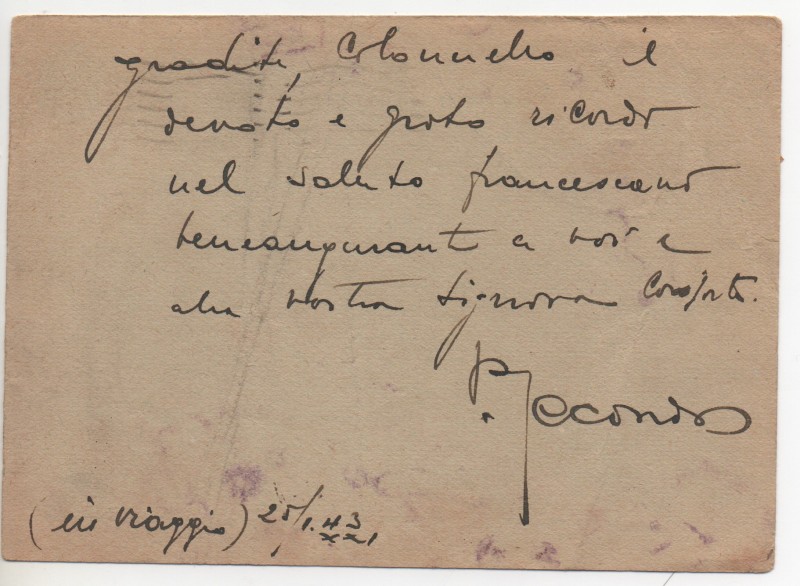 gradite, Colonnello il
devoto e grato ricordo
nel saluto francescano
beneaugurante a voi e
alla vostra Signora
P. Secondo
(in viaggio) 25/1.43
XXI